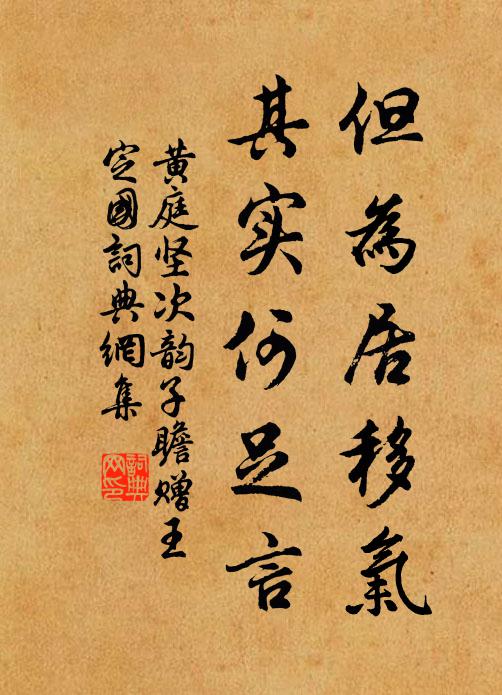 但為居移氣
其实何足言
黄庭坚次韵子瞻赠王
定國詞典網集
詞典
网印